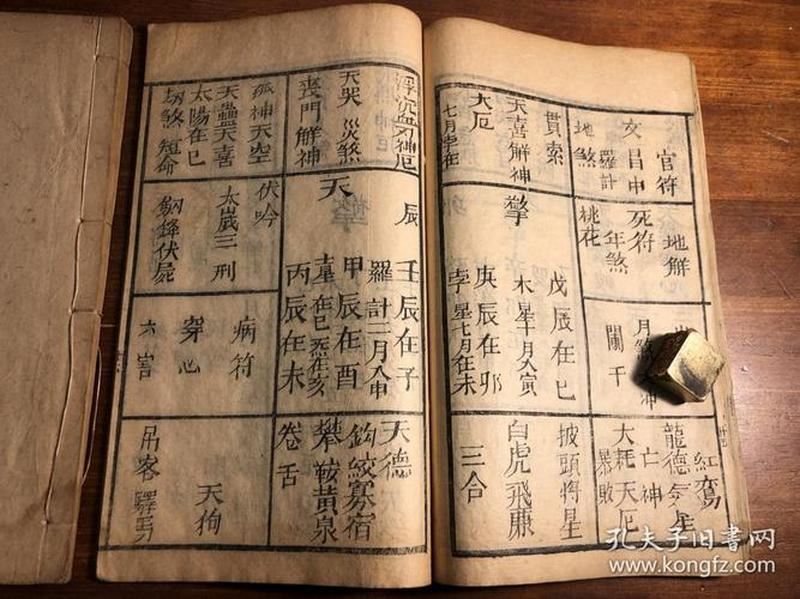 官符
文昌申
羅計
地煞
貫索
天喜解神
大厄
七月孛在
地解
死符
年煞
桃花
擎
戊辰在巳
木星十月入寅
庚辰在卯
孛星七月在未
闌干
紅鸾
龍德
亡神
大耗天厄
暴敗
披頭將星
白虎飛廉
三合
浮沉血刃神厄
天哭災煞
喪門解神
孤神天空
天蠱天喜
太陽在巳
劫煞短命
天
辰
壬辰在子
羅計二月入申
甲辰在酉
丙辰在未
伏吟
太歲三刑
劒鋒伏屍
病符
穿心
六害
天德
鈎絞寡宿
攀鞍黃泉
卷舌
天狗
吊客驛馬
孔夫子旧書网
www.kongfz.com